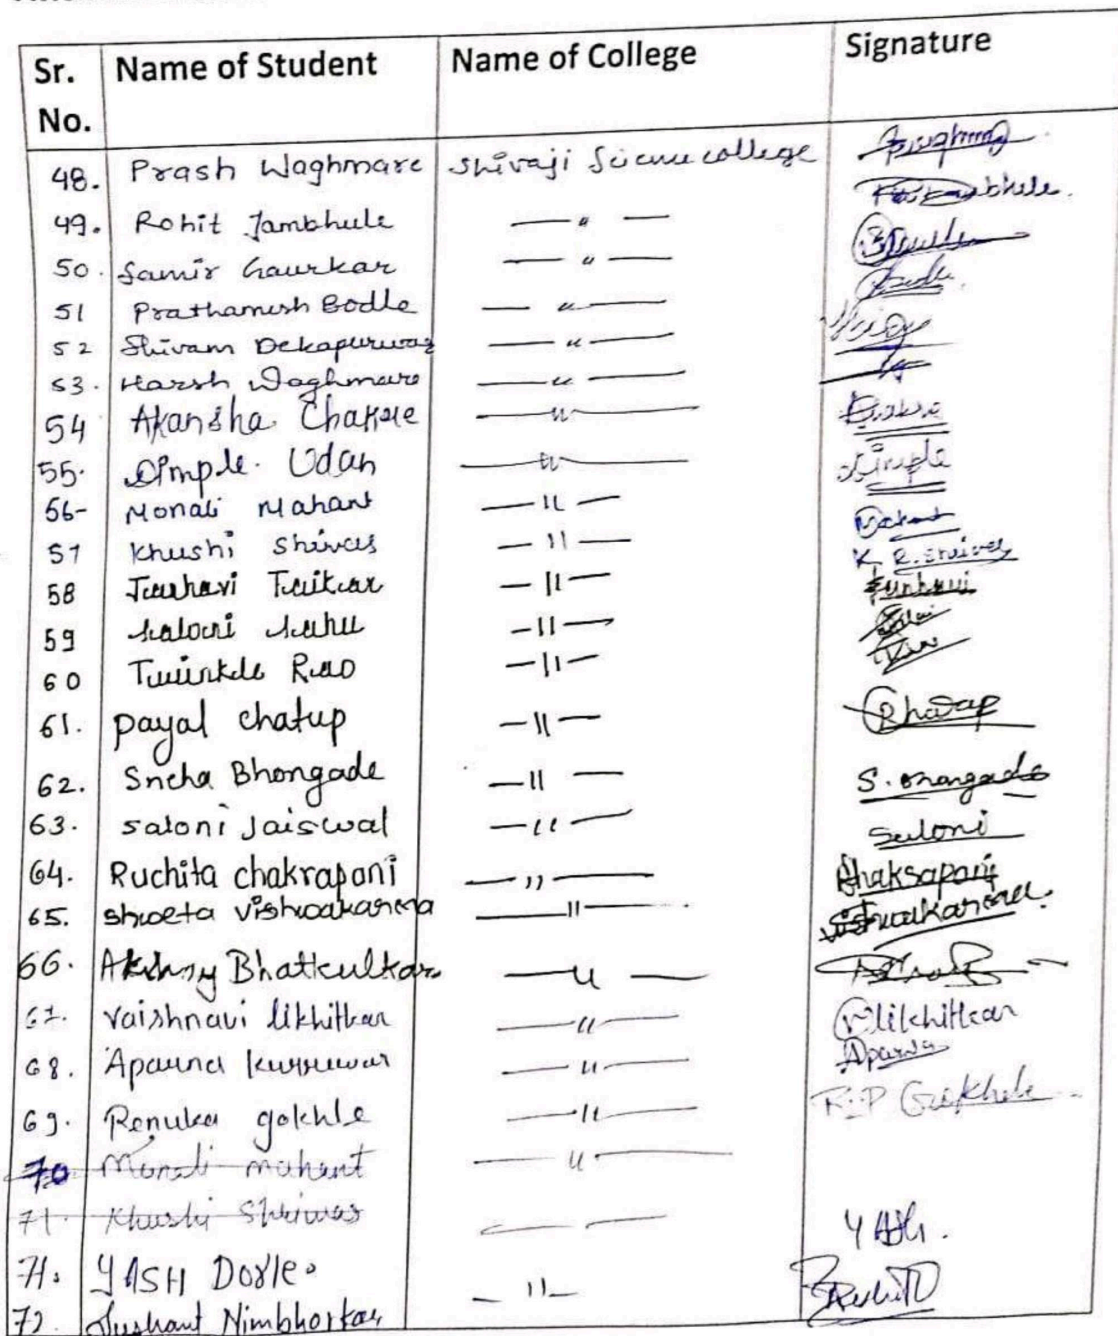 Sr. No. Name of Student Name of College Signature
48. Prash Waghmare Shivaji Science college
49. Rohit Jambhule — " —
50. Samir Gaurkar — " —
51 Prathamesh Bodle — " —
52 Shivam — " —
53. Harsh Waghmare — " —
54 Akansha Chakole — " —
55. Dimple. Udan — " — Dimple
56- Monali Mahant — " — Mahant
57 Khushi Shivas — " — K. R. Shrivas
58 — " —
59 Saloni Sahu — " —
60 Twinkle Rao — " —
61. payal chatup — " —
62. Sneha Bhongade — " — S. Bhongade
63. Saloni Jaiswal — " — Saloni
64. Ruchita chakrapani — " —
65. shweta vishwakarma — " — vishwakarma.
66. Akshay Bhatkulkar — " —
67. vaishnavi likhitkar — " — V likhitkar
68. Aparna kurruwar — " — Aparna
69. Renuka gokhle — " — R.P Gokhele
70 Monali mahant — " —
71. Khushi Shriwas — —
71. YASH Dorle. — " — YASH.
72. Sushant Nimbhorkar